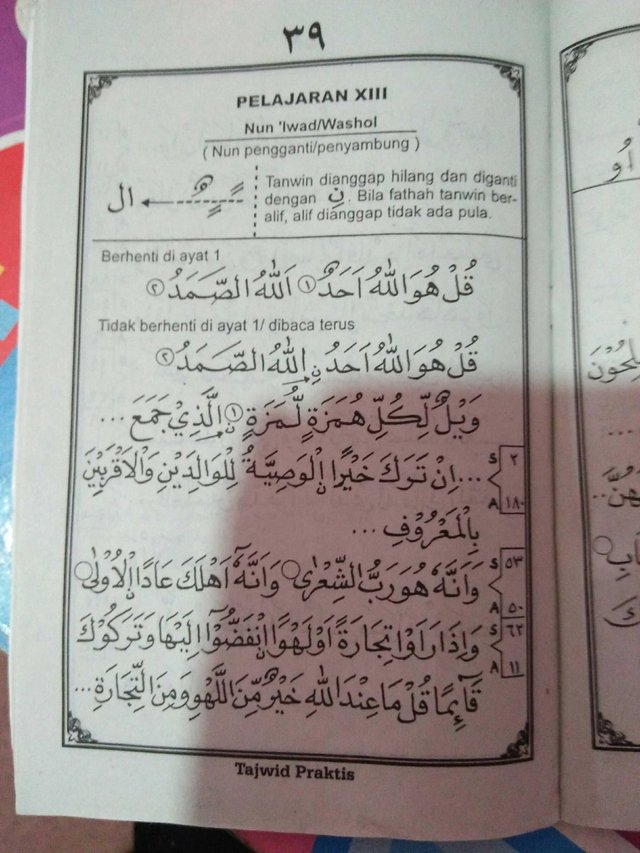 ٣٩
PELAJARAN XIII
Nun 'Iwad/Washol
( Nun pengganti/penyambung )
ال
Tanwin dianggap hilang dan diganti
dengan نِ . Bila fathah tanwin ber-
alif, alif dianggap tidak ada pula.
Berhenti di ayat 1
قُلْ هُوَ اللّٰهُ اَحَدٌ ① اَللّٰهُ الصَّمَدُ ②
Tidak berhenti di ayat 1/ dibaca terus
قُلْ هُوَ اللّٰهُ اَحَدُ نِ اللّٰهُ الصَّمَدُ ②
وَيْلٌ لِّكُلِّ هُمَزَةٍ لُّمَزَةٍ ① نِ الَّذِيْ جَمَعَ ...
... اِنْ تَرَكَ خَيْرًا نِ الْوَصِيَّةُ لِلْوَالِدَيْنِ وَالْاَقْرَبِيْنَ
S ٢
A ١٨٠
بِالْمَعْرُوْفِ ...
وَاَنَّهٗ هُوَ رَبُّ الشِّعْرٰى وَاَنَّهٗٓ اَهْلَكَ عَادًا نِ الْاُوْلٰى
S ٥٣
A ٥٠
وَاِذَا رَاَوْا تِجَارَةً اَوْ لَهْوًا نِ انْفَضُّوْٓا اِلَيْهَا وَتَرَكُوْكَ
S ٦٢
A ١١
قَآئِمًا قُلْ مَا عِنْدَ اللّٰهِ خَيْرٌ مِّنَ اللَّهْوِ وَمِنَ التِّجَارَةِ ...
Tajwid Praktis